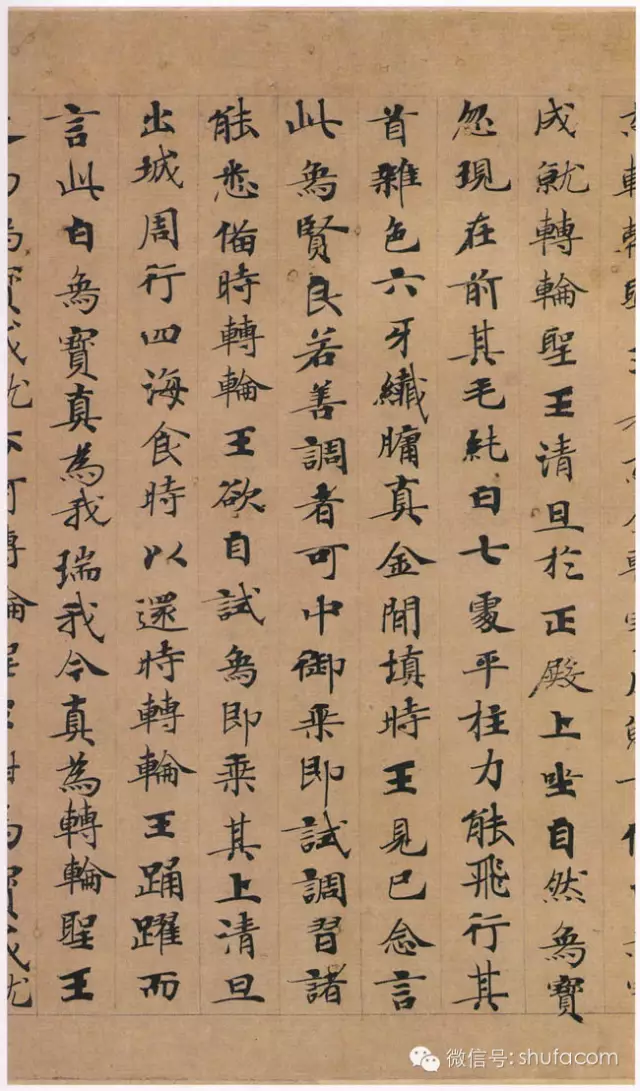 成就轉輪聖王清旦於正殿上坐自然象寶
忽現在前其毛純白七處平柱力能飛行其
首雜色六牙纖𦟛真金間填時王見已念言
此象賢良若善調者可中御乘即試調習諸
能悉備時轉輪王欲自試象即乘其上清旦
出城周行四海食時以還時轉輪王踊躍而
言此白象寶真為我瑞我今真為轉輪聖王
微信号: shufacom